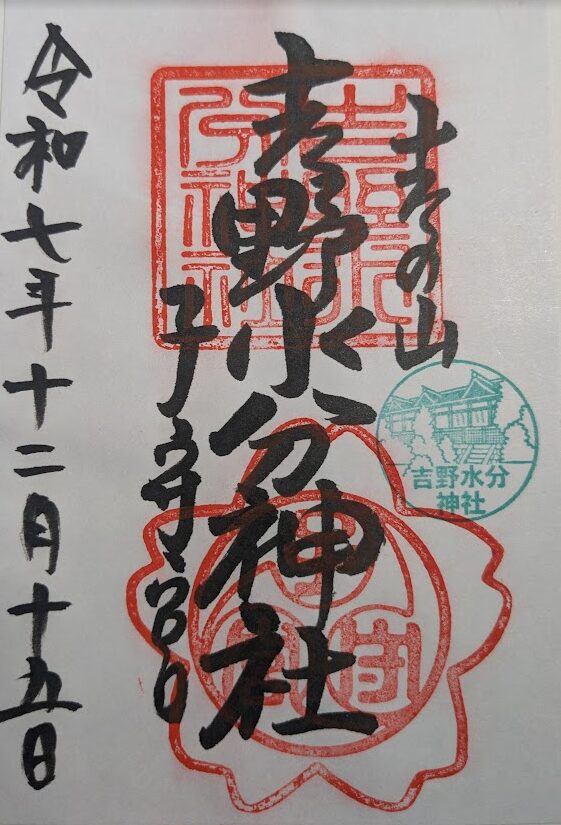 吉の山
吉野水分神社
子守宮
令和七年十二月十五日
吉野水分神社
吉野水分
神社